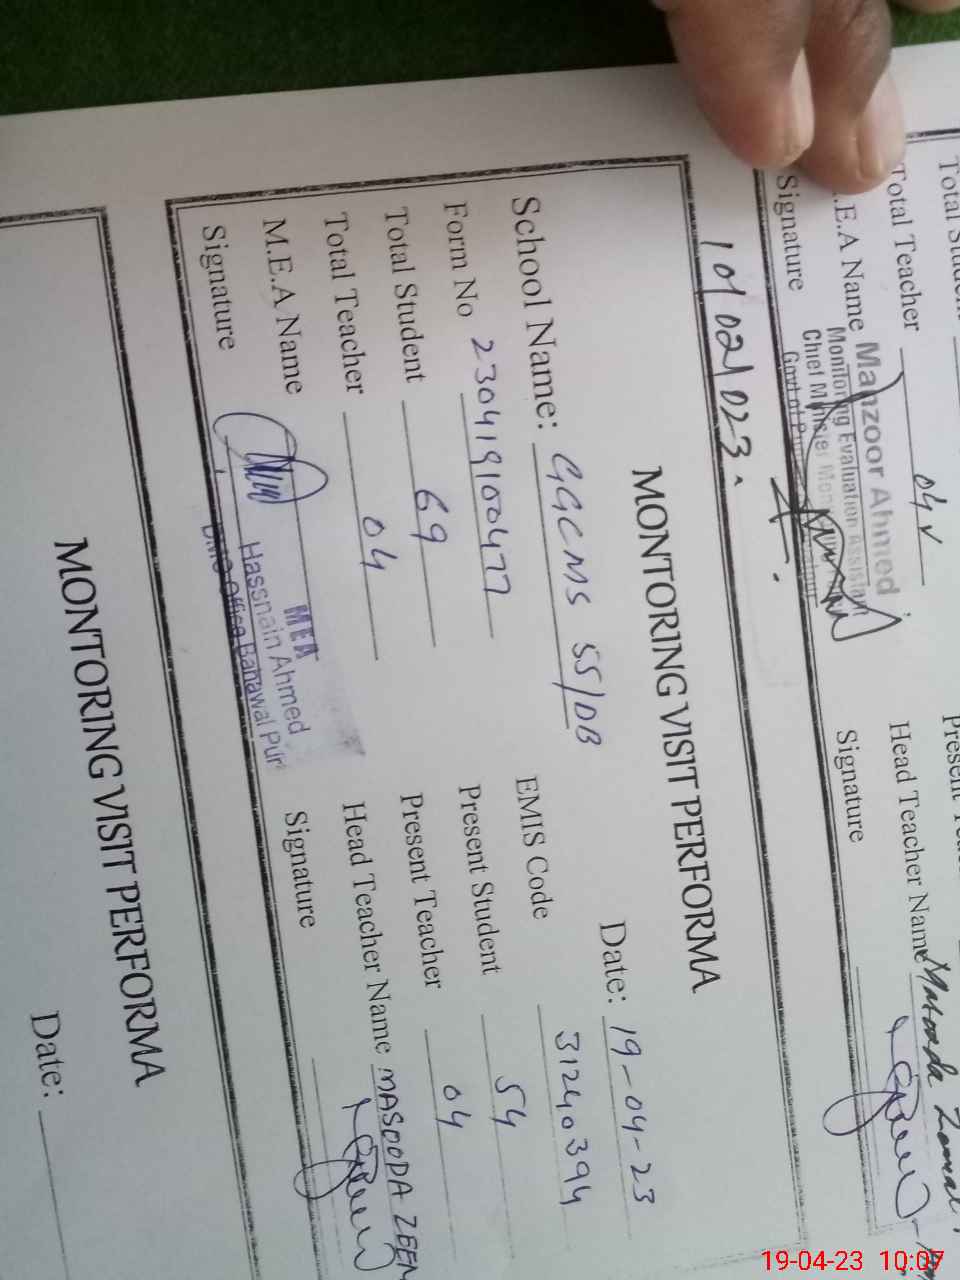 Total Student
Total Teacher 04 ✓
M.E.A Name Manzoor Ahmed
Monitoring Evaluation Assistant
Chief Minister
Signature
Head Teacher Name Masooda
Signature
MONTORING VISIT PERFORMA
Date: 19-04-23
School Name: GGCMS 55/DB EMIS Code 31240394
Form No 230419100477 Present Student 54
Total Student 69 Present Teacher 04
Total Teacher 04 Head Teacher Name MASOODA ZEEN
M.E.A Name MEA
Hassnain Ahmed
DMO Office Bahawal Pur
Signature Signature
MONTORING VISIT PERFORMA
Date:
19-04-23 10:07